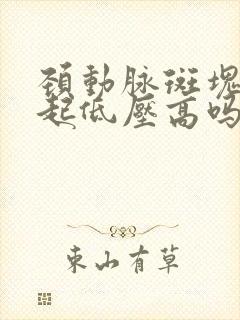 頚動脉斑塊
起低壓高吗
東山有草